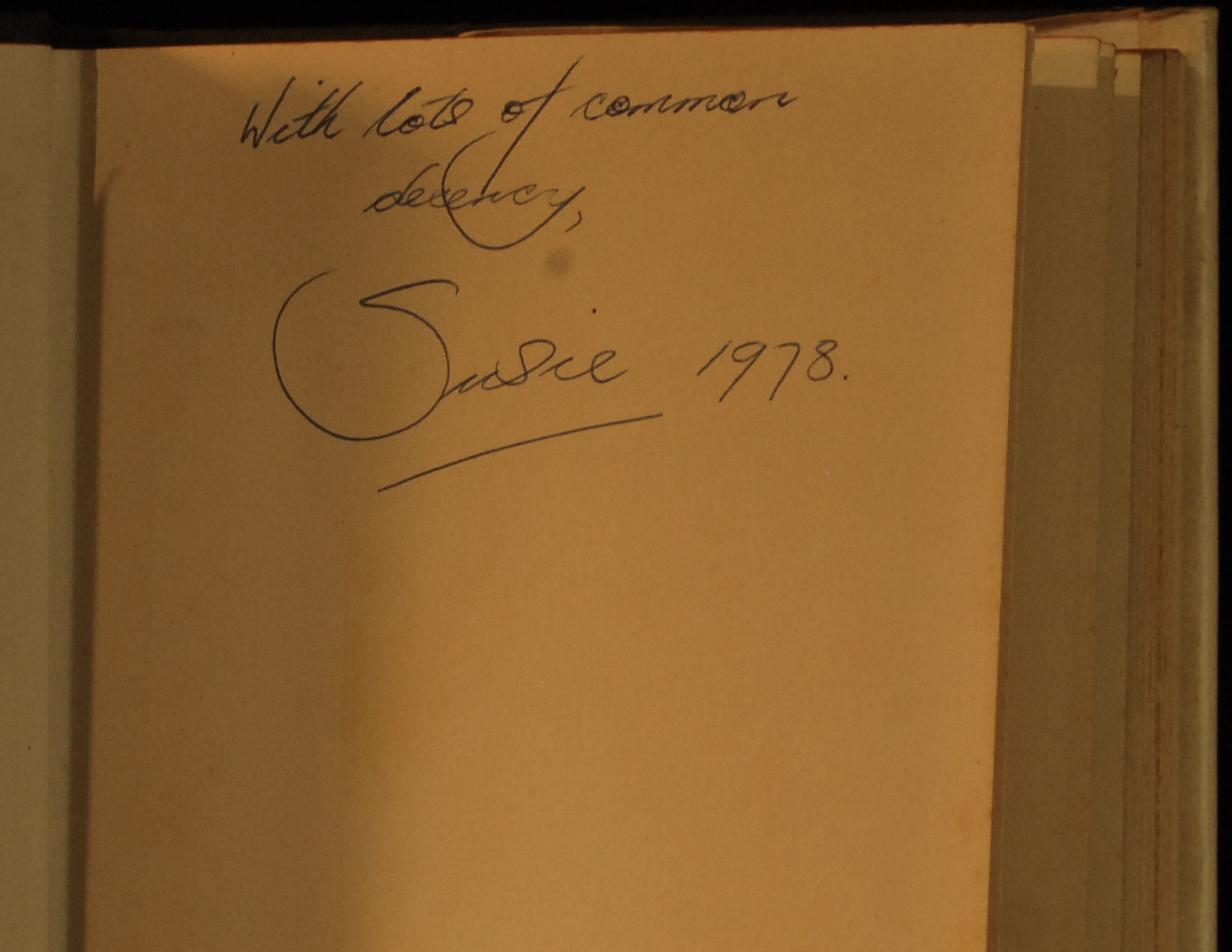 With lots of common
decency,
Susie 1978.